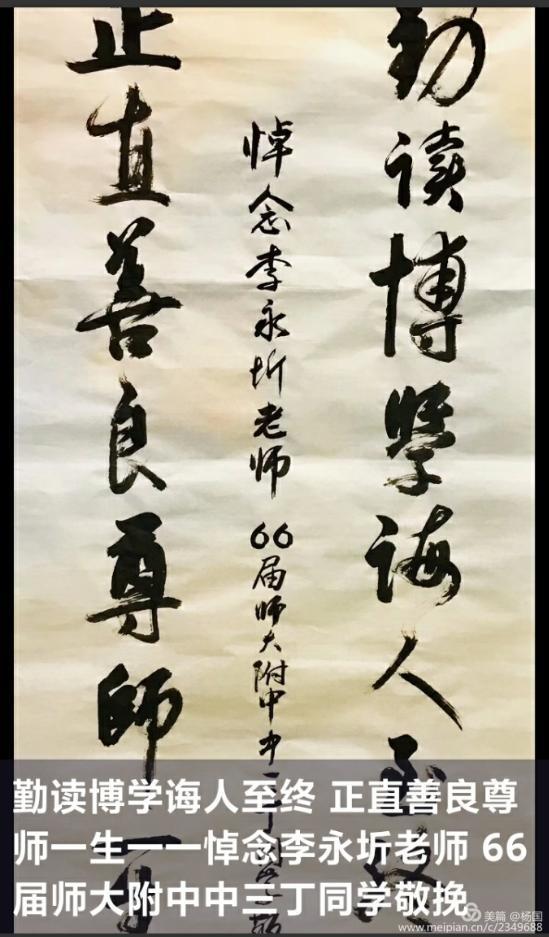 勤读博學诲人至终
悼念李永圻老师 66届师大附中中三丁
正直善良尊師一
勤读博学诲人至终 正直善良尊
师一生一一悼念李永圻老师 66
届师大附中中三丁同学敬挽
美篇 @杨国
www.meipian.cn/c/2349688